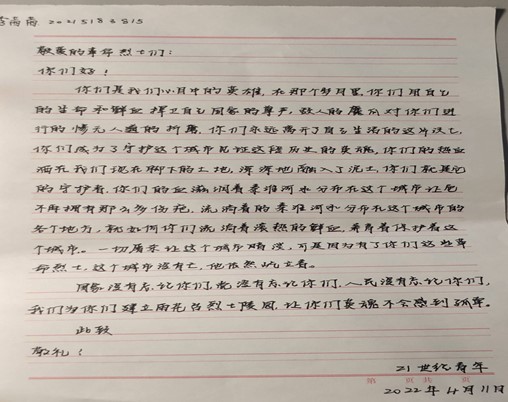 2021518 3815
敬爱的革命烈士们：
你们好！
你们是我们心目中的英雄，在那个岁月里，你们用自己
的生命和鲜血捍卫自己国家的尊严，敌人的魔爪对你们进
行的惨无人道的折磨，你们永远离开了自己生活的这片天空，
你们成为了守护这个城市见证这段历史的英魂，你们的热血
洒在我们现在脚下的土地，深深地融入了泥土，你们就是它
的守护者，你们的血滋润着秦淮河水分布在这个城市让他
不再拥有那么多伤疤，流淌着的秦淮河水分布在这个城市的
各个地方，就如同你们流淌着滚热的鲜血，看着你护着这
个城市。一切原来让这个城市暗淡，可是因为有了你们这些革
命烈士，这个城市没有亡，他依然屹立着。
国家没有忘记你们，党没有忘记你们，人民没有忘记你们，
我们为你们建立雨花台烈士陵园，让你们英魂不会感到孤单。
此致
敬礼！
21世纪青年
第 页 共 页
2022年4月11日